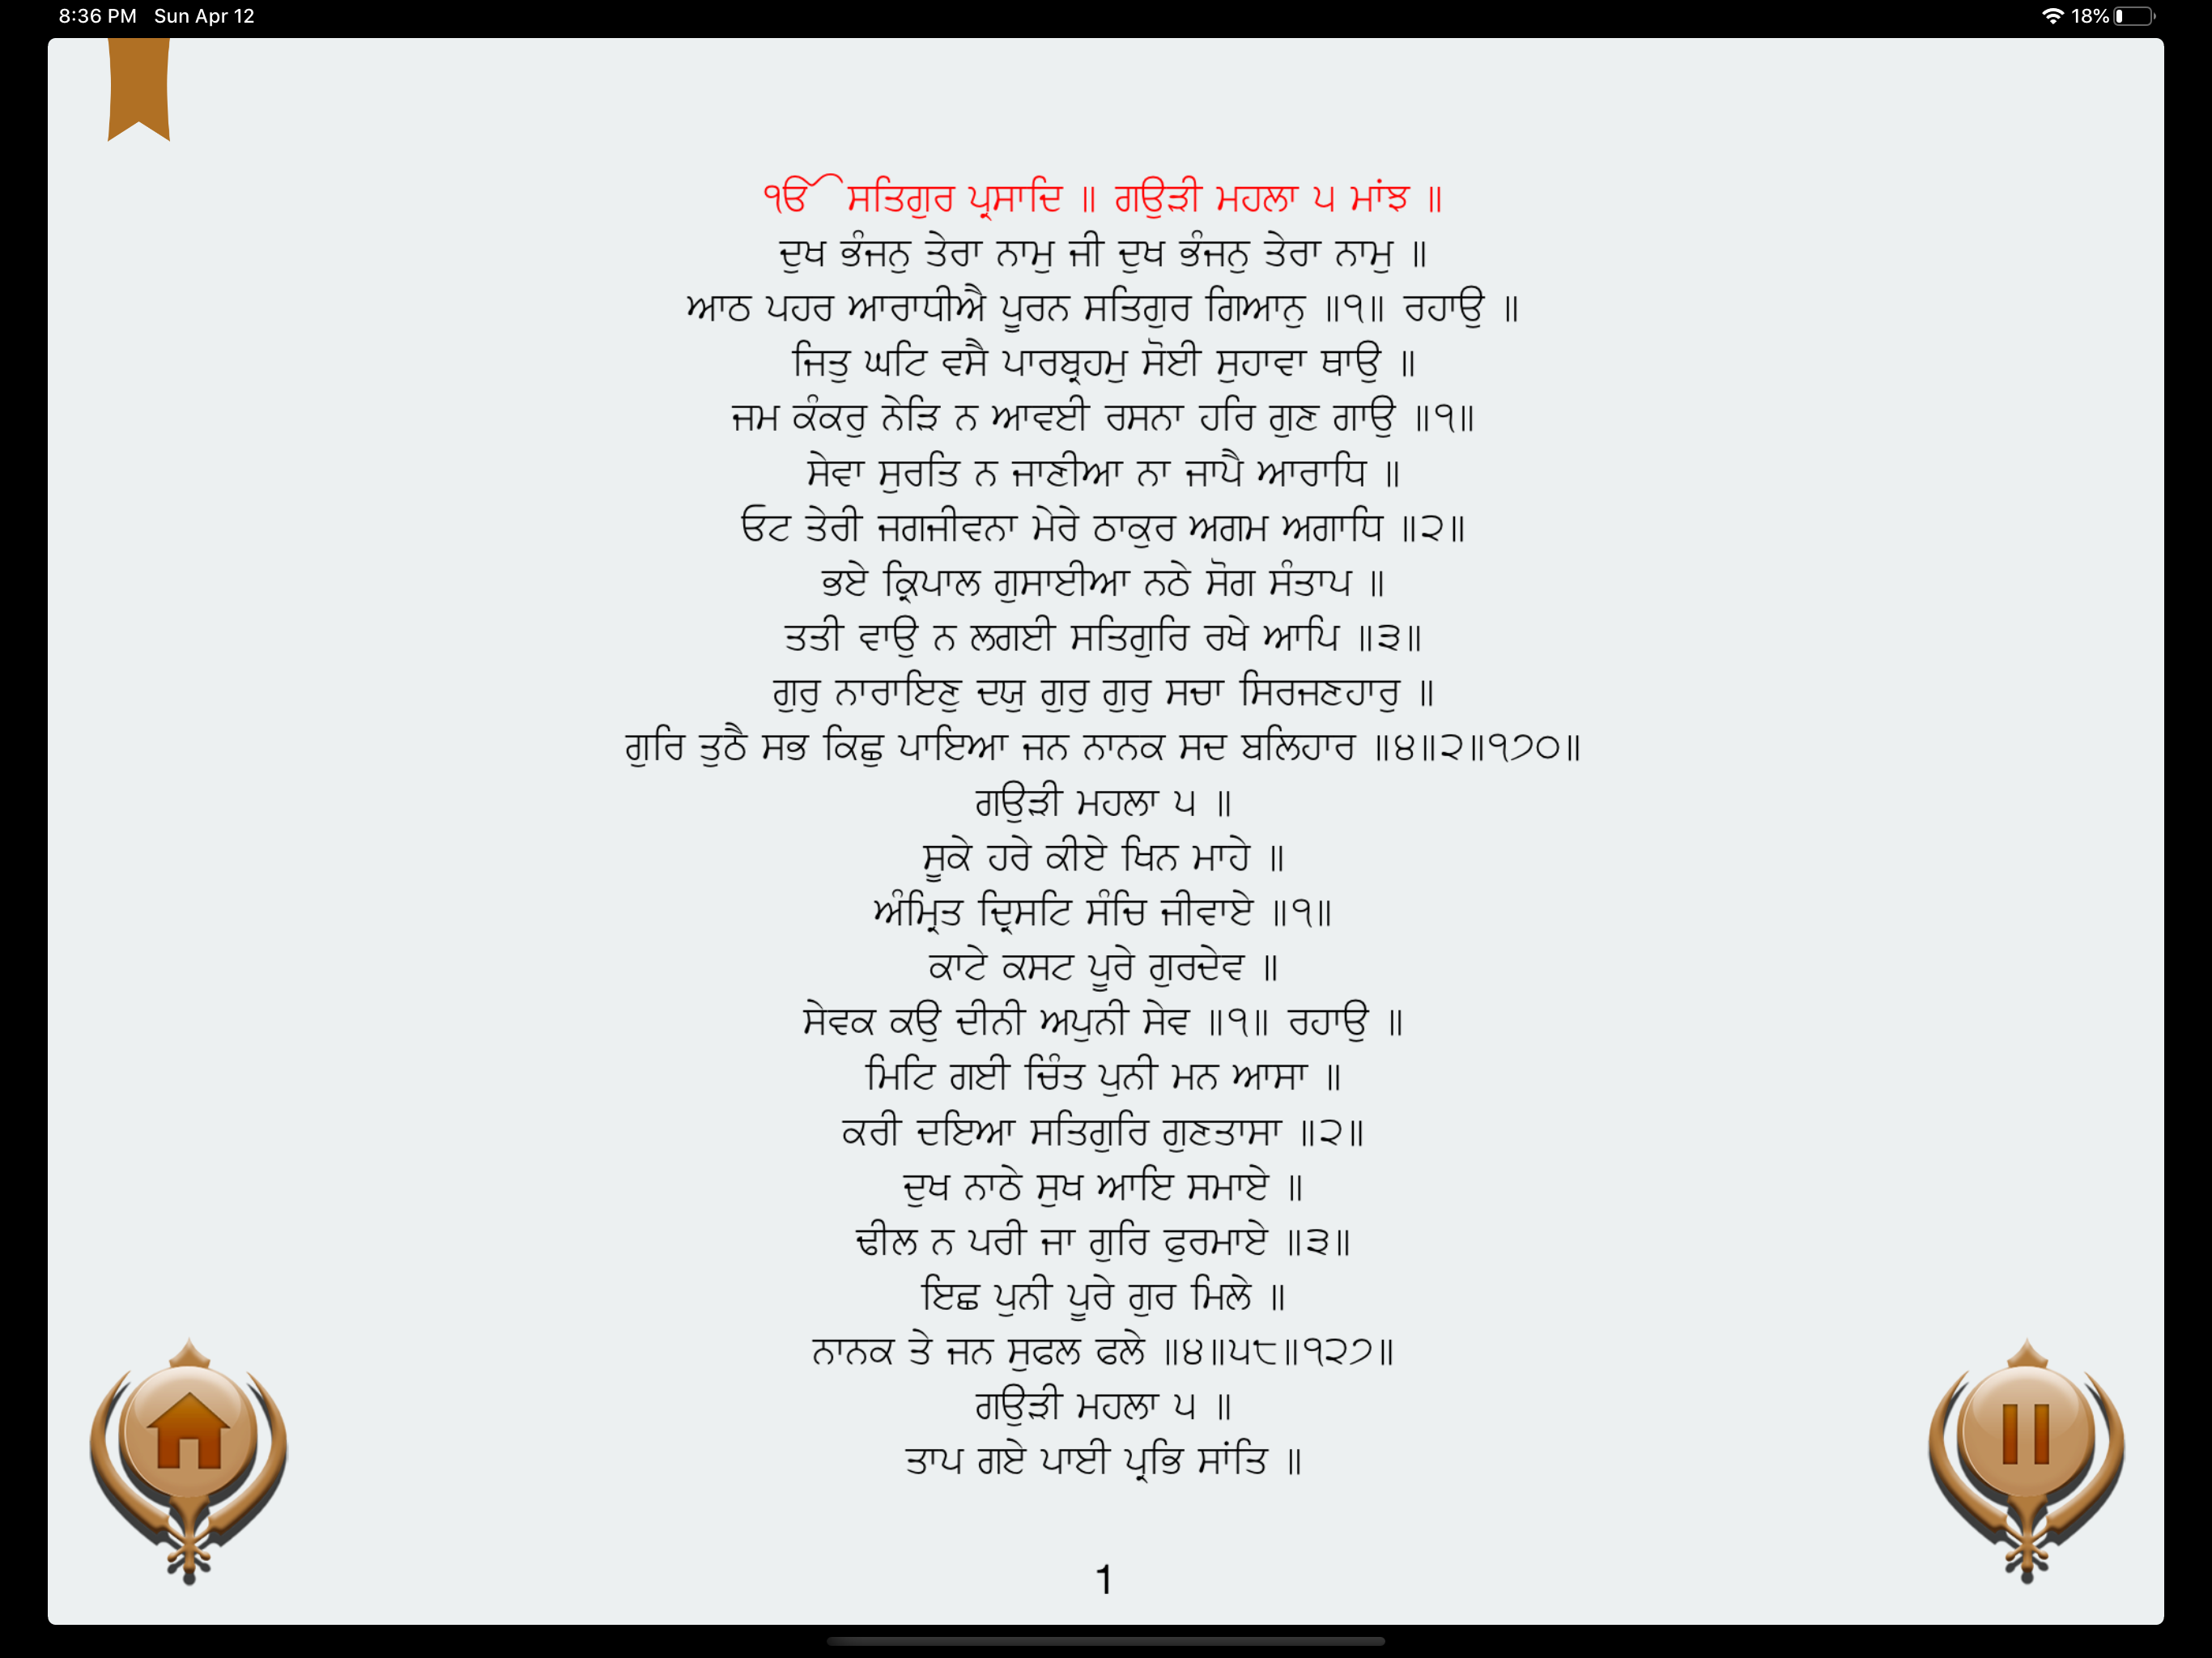 8:36 PM Sun Apr 12 18%
ੴ ਸਤਿਗੁਰ ਪ੍ਰਸਾਦਿ ॥ ਗਉੜੀ ਮਹਲਾ ੫ ਮਾਂਝ ॥
ਦੁਖ ਭੰਜਨੁ ਤੇਰਾ ਨਾਮੁ ਜੀ ਦੁਖ ਭੰਜਨੁ ਤੇਰਾ ਨਾਮੁ ॥
ਆਠ ਪਹਰ ਆਰਾਧੀਐ ਪੂਰਨ ਸਤਿਗੁਰ ਗਿਆਨੁ ॥੧॥ ਰਹਾਉ ॥
ਜਿਤੁ ਘਟਿ ਵਸੈ ਪਾਰਬ੍ਰਹਮੁ ਸੋਈ ਸੁਹਾਵਾ ਥਾਉ ॥
ਜਮ ਕੰਕਰੁ ਨੇੜਿ ਨ ਆਵਈ ਰਸਨਾ ਹਰਿ ਗੁਣ ਗਾਉ ॥੧॥
ਸੇਵਾ ਸੁਰਤਿ ਨ ਜਾਣੀਆ ਨਾ ਜਾਪੈ ਆਰਾਧਿ ॥
ਓਟ ਤੇਰੀ ਜਗਜੀਵਨਾ ਮੇਰੇ ਠਾਕੁਰ ਅਗਮ ਅਗਾਧਿ ॥੨॥
ਭਏ ਕ੍ਰਿਪਾਲ ਗੁਸਾਈਆ ਨਠੇ ਸੋਗ ਸੰਤਾਪ ॥
ਤਤੀ ਵਾਉ ਨ ਲਗਈ ਸਤਿਗੁਰਿ ਰਖੇ ਆਪਿ ॥੩॥
ਗੁਰੁ ਨਾਰਾਇਣੁ ਦਯੁ ਗੁਰੁ ਗੁਰੁ ਸਚਾ ਸਿਰਜਣਹਾਰੁ ॥
ਗੁਰਿ ਤੁਠੈ ਸਭ ਕਿਛੁ ਪਾਇਆ ਜਨ ਨਾਨਕ ਸਦ ਬਲਿਹਾਰ ॥੪॥੨॥੧੭੦॥
ਗਉੜੀ ਮਹਲਾ ੫ ॥
ਸੂਕੇ ਹਰੇ ਕੀਏ ਖਿਨ ਮਾਹੇ ॥
ਅੰਮ੍ਰਿਤ ਦ੍ਰਿਸਟਿ ਸੰਚਿ ਜੀਵਾਏ ॥੧॥
ਕਾਟੇ ਕਸਟ ਪੂਰੇ ਗੁਰਦੇਵ ॥
ਸੇਵਕ ਕਉ ਦੀਨੀ ਅਪੁਨੀ ਸੇਵ ॥੧॥ ਰਹਾਉ ॥
ਮਿਟਿ ਗਈ ਚਿੰਤ ਪੁਨੀ ਮਨ ਆਸਾ ॥
ਕਰੀ ਦਇਆ ਸਤਿਗੁਰਿ ਗੁਣਤਾਸਾ ॥੨॥
ਦੁਖ ਨਾਠੇ ਸੁਖ ਆਇ ਸਮਾਏ ॥
ਢੀਲ ਨ ਪਰੀ ਜਾ ਗੁਰਿ ਫੁਰਮਾਏ ॥੩॥
ਇਛ ਪੁਨੀ ਪੂਰੇ ਗੁਰ ਮਿਲੇ ॥
ਨਾਨਕ ਤੇ ਜਨ ਸੁਫਲ ਫਲੇ ॥੪॥੫੮॥੧੨੭॥
ਗਉੜੀ ਮਹਲਾ ੫ ॥
ਤਾਪ ਗਏ ਪਾਈ ਪ੍ਰਭਿ ਸਾਂਤਿ ॥
1